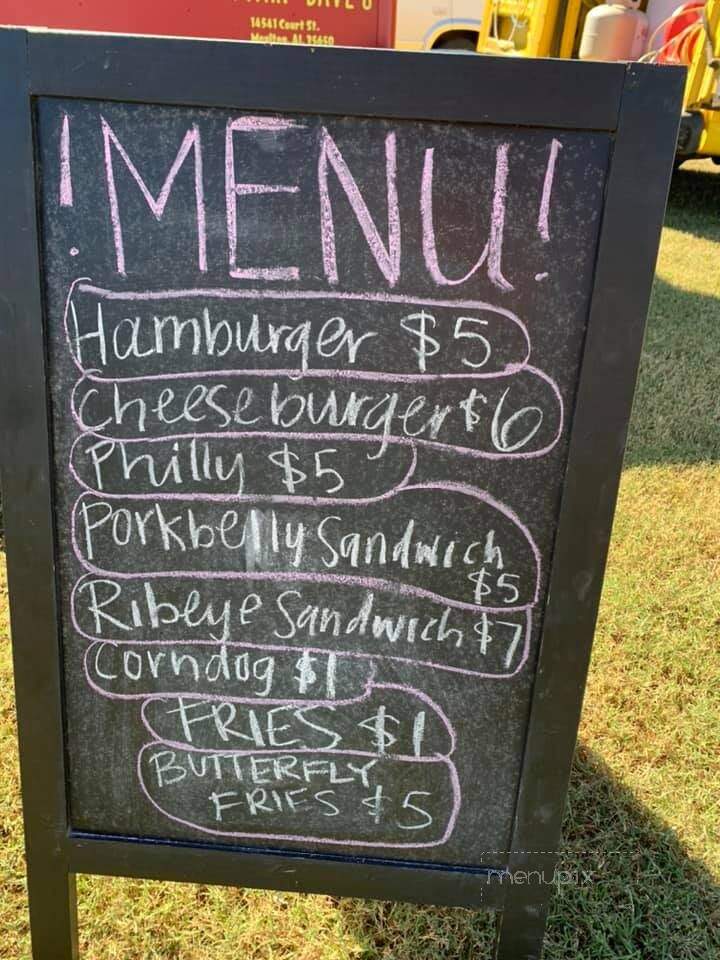 14541 Court St.
Moulton, AL 35650
!MENU!
Hamburger $5
Cheeseburger $6
Philly $5
Porkbelly Sandwich
$5
Ribeye Sandwich $7
Corndog $1
FRIES $1
BUTTERFLY
FRIES $5
menupix